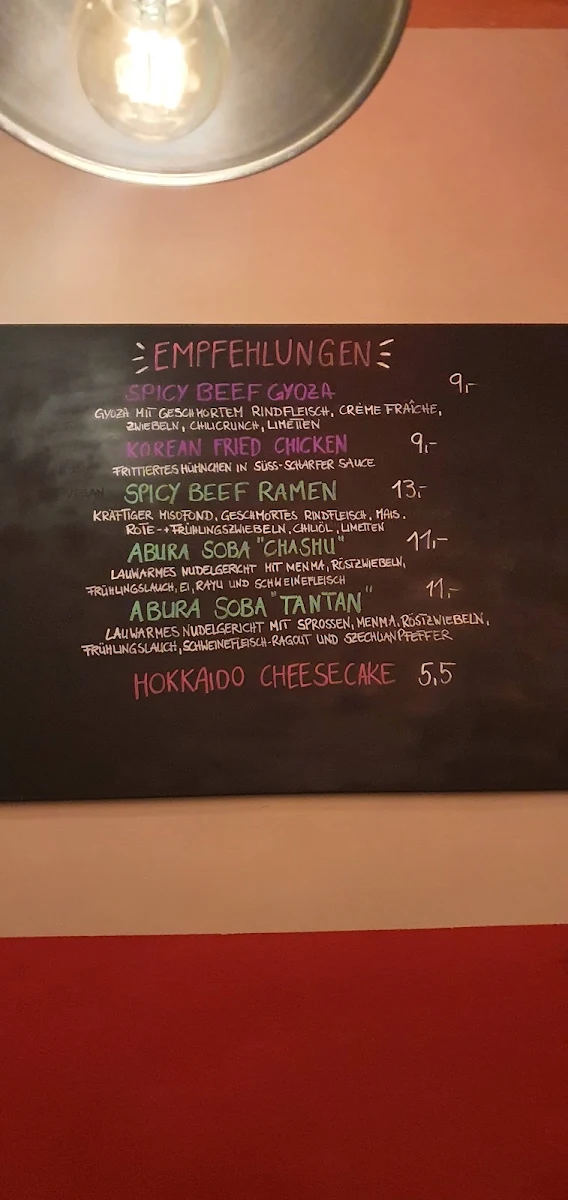 EMPFEHLUNGEN
SPICY BEEF GYOZA 9,-
GYOZA MIT GESCHMORTEM RINDFLEISCH, CRÈME FRAÎCHE,
ZWIEBELN, CHILICRUNCH, LIMETTEN
KOREAN FRIED CHICKEN 9,-
FRITTIERTES HÜHNCHEN IN SÜSS-SCHARFER SAUCE
SPICY BEEF RAMEN 13,-
KRÄFTIGER MISOFOND, GESCHMORTES RINDFLEISCH, MAIS.
ROTE-+FRÜHLINGSZWIEBELN, CHILIÖL, LIMETTEN
ABURA SOBA "CHASHU" 11,-
LAUWARMES NUDELGERICHT MIT MENMA, RÖSTZWIEBELN,
FRÜHLINGSLAUCH, EI, RAYU UND SCHWEINEFLEISCH
ABURA SOBA "TANTAN" 11,-
LAUWARMES NUDELGERICHT MIT SPROSSEN, MENMA, RÖSTZWIEBELN,
FRÜHLINGSLAUCH, SCHWEINEFLEISCH-RAGOUT UND SZECHUANPFEFFER
HOKKAIDO CHEESECAKE 5,5